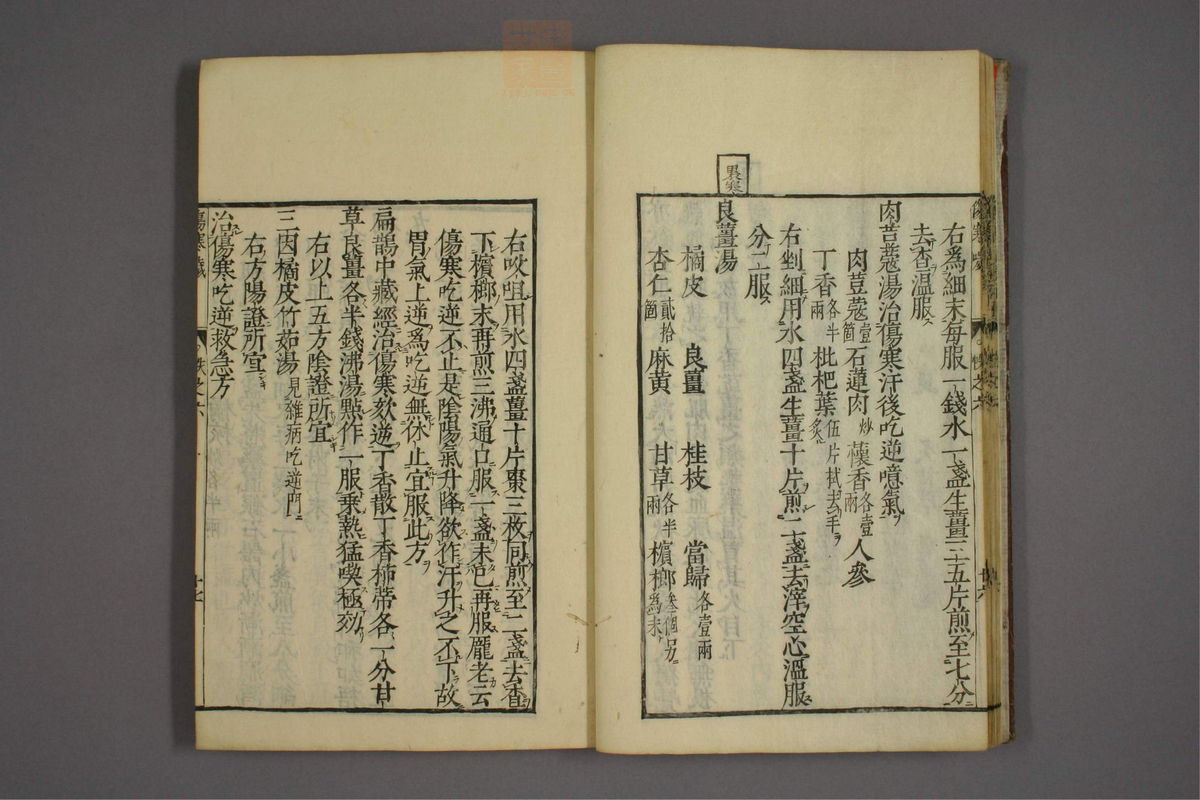 右爲細末每服一錢水一盞生薑三五片煎至七分
去查溫服
肉荳蔻湯治傷寒汗後吃逆噫氣
肉荳蔻壹箇石蓮肉炒懷香各壹兩人參
丁香各半兩枇杷葉伍片拭去毛炙
右剉細用水四盞生薑十片煎二盞去滓空心溫服
分二服
良薑湯
橘皮 良薑 桂枝 當歸各壹兩
杏仁貳拾箇麻黃 甘草各半兩檳榔叁個另爲末
右㕮咀用水四盞薑十片棗三枚同煎至二盞去査
下檳榔末再煎三沸通口服一盞未已再服龐老云
傷寒吃逆不止是陰陽氣升降欲作汗升之不下故
胃氣上逆爲吃逆無休止宜服此方
扁鵲中藏經治傷寒欬逆丁香散丁香柿蒂各一分甘
草良薑各半錢沸湯點作一服乘熱猛喫極效
右以上五方陰證所宜
三因橘皮竹茹湯見雜病吃逆門
右方陽證所宜
治傷寒吃逆救急方
傷寒